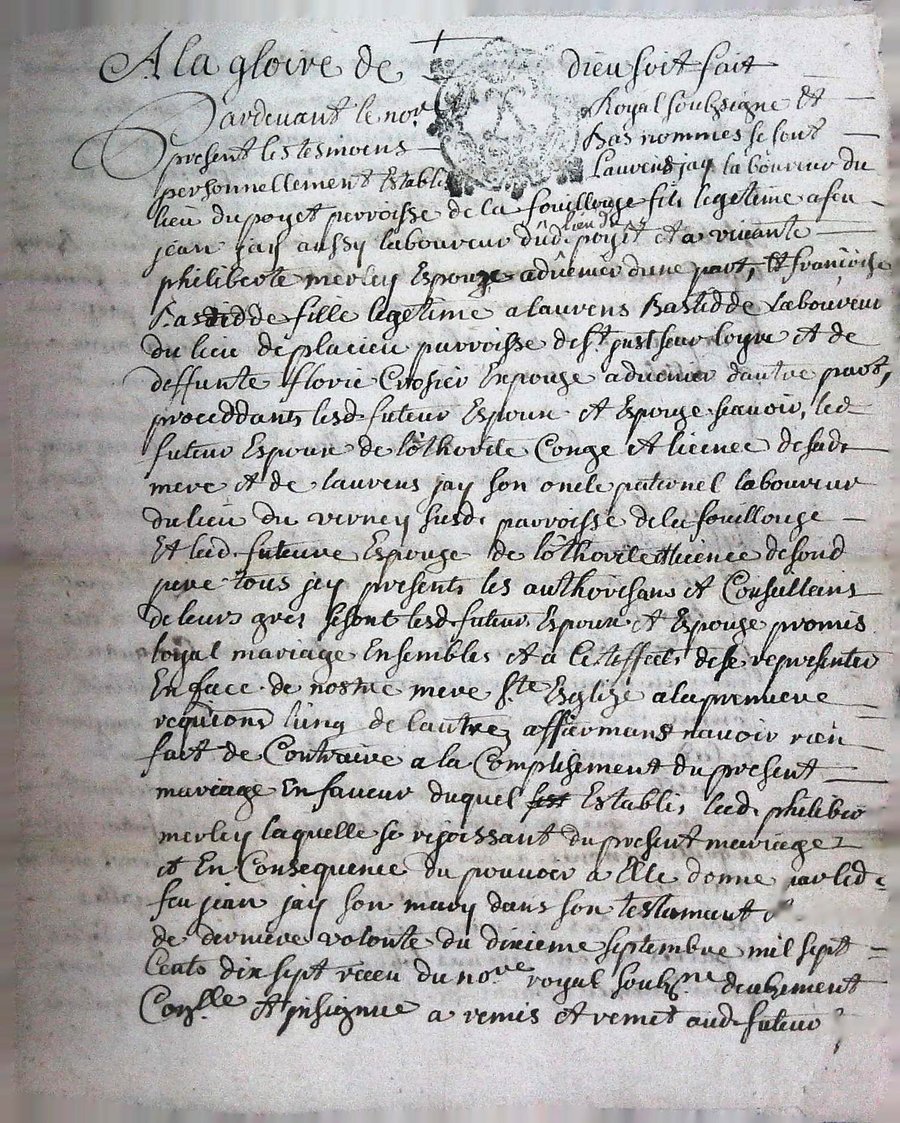 A la gloire de dieu soit fait
Pardevant le no.re Royal soubsigne Et
present les tesmoins Bas nommes se sont
personnellement Establis Laurens jay laboureur du
lieu du poyet parroisse de la fouillouze fils legetime a feu
jean jay aussy laboureur dud lieu du poyet et a vivante
philiberte merley Espouze advenir dune part, Et francoise
Bastidde fille legetime a laurens Bastidde Laboureur
du lieu de placieu parroisse de st just seur loyre et de
deffunte florie Crosier Expouze advenir dautre part,
proceddants lesd futeur Espoux et Espouze scavoir, led
futeur Espoux de lothorite Conge et licence de sad
mere et de laurens jay son oncle paternel laboureur
du lieu du verney susd. parroisse de la fouillouze
Et lad. futeure Espouze de lothorite et licence de sond
pere tous jcy presents les authorisans et Conseillans
de leurs gres se sont lesd futeur Espoux et Espouze promis
loyal mariage Ensembles et a cest effect de se representer
En face de nostre mere ste Eglize a la premiere
requisions lung de lautre affirmans navoir rien
fait de Contraire a la Complisement du present
mariage En faveur duquel Establis lad. philiberte
merley laquelle se rejoissant du present mariage
et En Consequence du pouvoir a Elle donne par led
feu jean jay son mary dans son testamant
de derniere volonte du dixieme septembre mil sept
Cents dix sept receu du no.re royal soubs.ne deuhement
Con.lle et insignue a remis et remet aud futeur